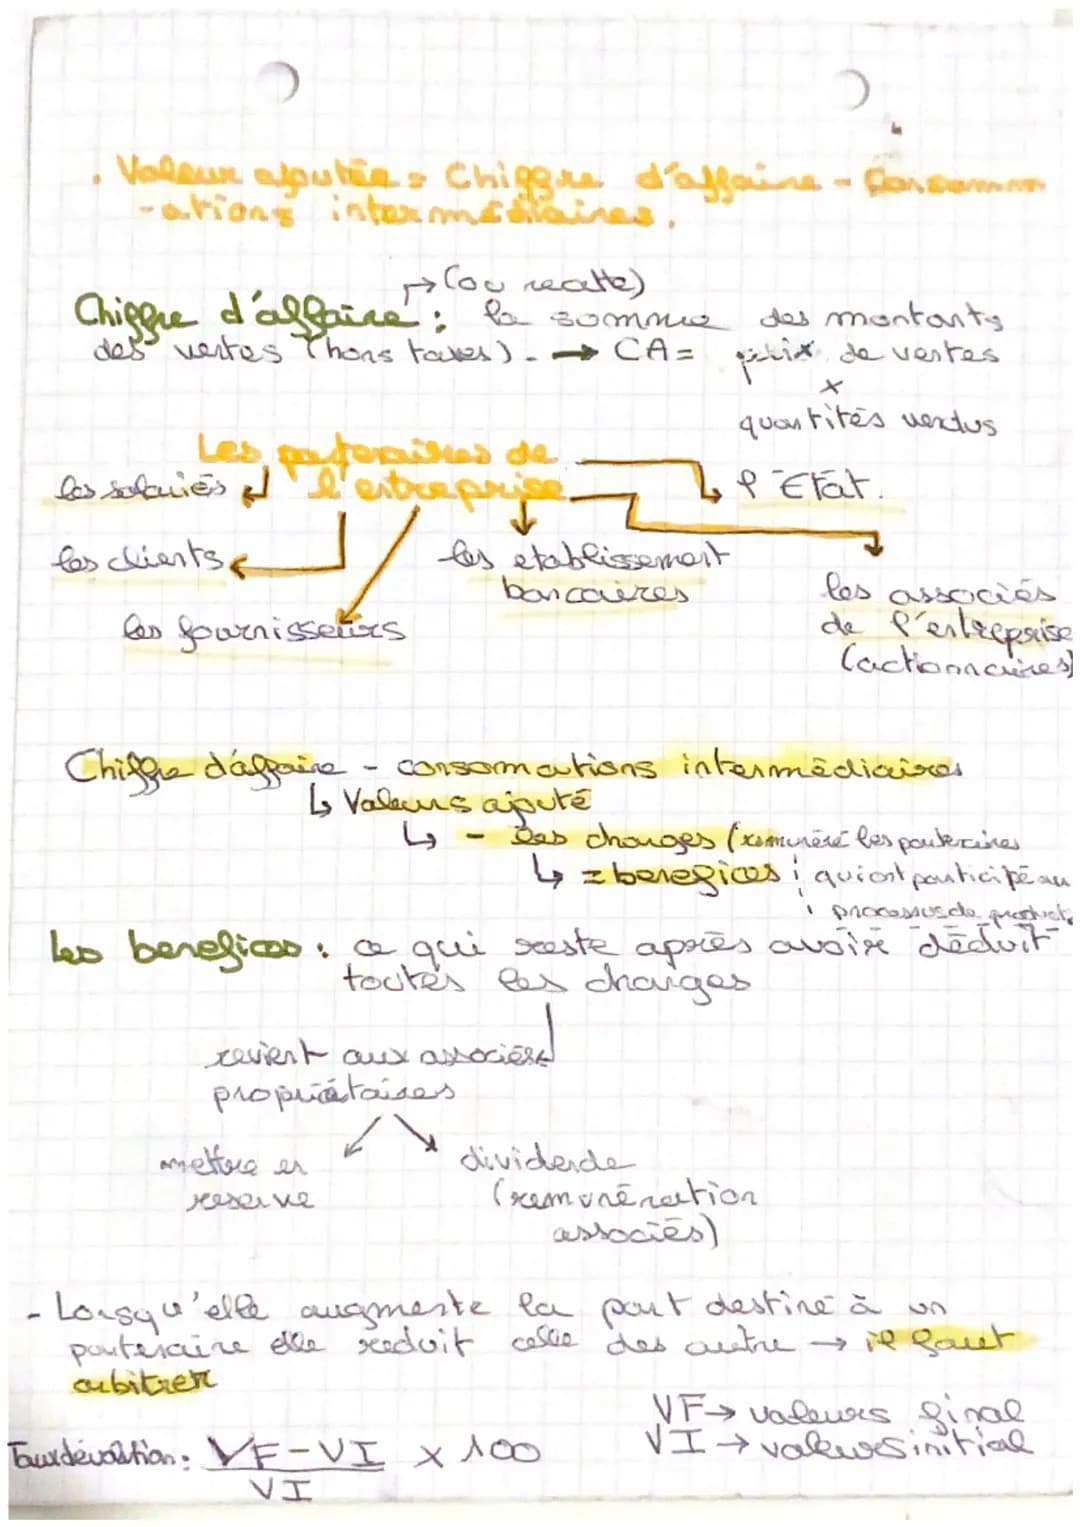 . Valeur ajoutée = Chiffre d'affaire - Consomm
-ations intermédiaires.
→ (ou recette)
Chiffre d'affaire : la somme des montants
des ventes (hors taxes). → CA = prix de ventes
x
quantités vendus
Les partenaires de
l'entreprise
les salariés
l'État.
les clients
les etablissement
bancaires
les fournisseurs
les associés
de l'entreprise
(actionnaires)
Chiffre d'affaire - consommations intermédiaires
↳ Valeurs ajouté
↳ - Les charges (rémunéré les partenaires
↳ = benefices qui ont participé au
processus de product
Les benefices : ce qui reste après avoir déduit
toutes les charges
revient aux associés
propriétaires
mettre en
reserve
dividende
(remunération
associés)
- Lorsqu'elle augmente la part destiné à un
partenaire elle reduit celle des autre → il faut
arbitrer
VF → valeurs final
VI → valeurs initial
Taux dévolution : VF - VI x 100
VI